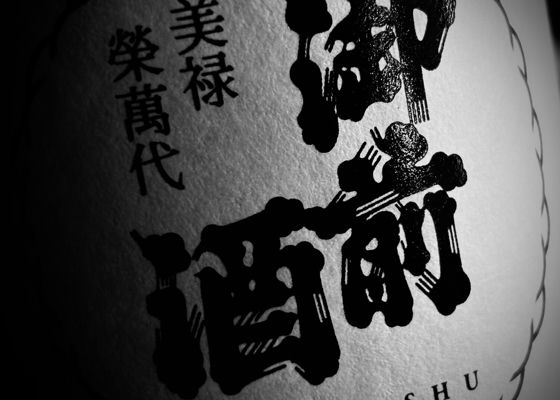 御前
酒
美禄
榮萬代
SHU